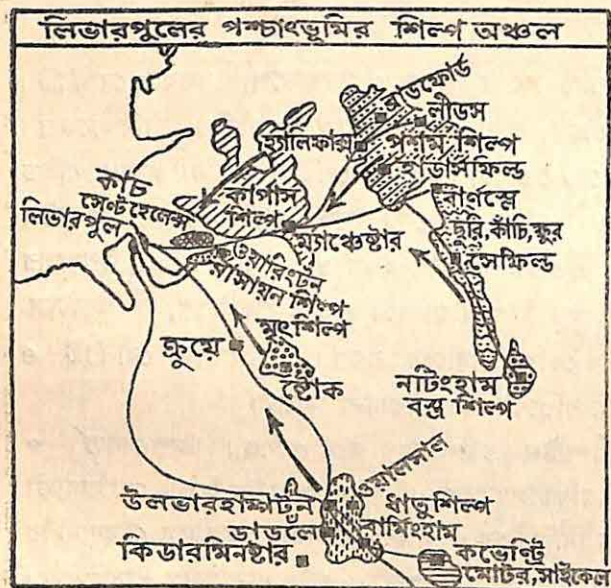 লিভারপুলের পশ্চাৎভূমির শিল্প অঞ্চল
ব্রাডফোর্ড
লীডস
হ্যালিফাক্স
পশম শিল্প
হাডার্সফিল্ড
কাপাস
শিল্প
বার্ণস্লে
ছুরি, কাঁচি, ক্ষুর
সেফিল্ড
কাচ
সেন্ট হেলেন্স
লিভারপুল
ম্যাঞ্চেষ্টার
ওয়ারিংটন
রাসায়ন শিল্প
মৃৎশিল্প
ক্রুয়ে
ষ্টোক
নটিংহাম
বস্ত্র শিল্প
ওয়ালসাল
উলভারহাম্পটন
ধাতুশিল্প
ডাডলে
বার্মিংহাম
কিডারমিনষ্টার
কভেণ্ট্রি
মোটর, সাইকেল